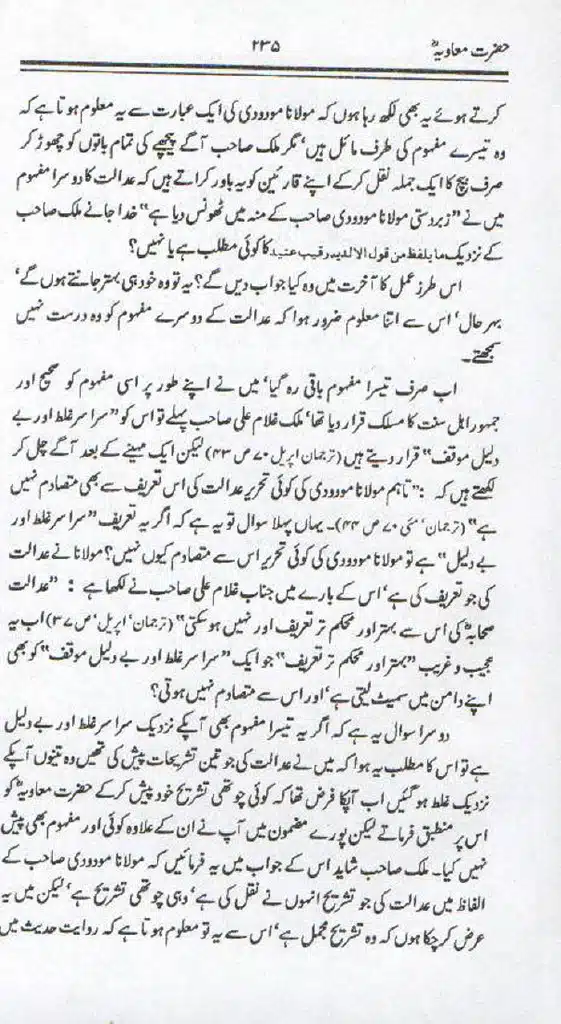 حضرت معاویہؓ ۲۳۵
کرتے ہوئے یہ بھی لکھ رہا ہوں کہ مولانا مودودی کی ایک عبارت سے یہ معلوم ہوتا ہے کہ
وہ تیسرے مفہوم کی طرف مائل ہیں‘ مگر ملک صاحب آگے پیچھے کی تمام باتوں کو چھوڑ کر
صرف بیچ کا ایک جملہ نقل کر کے اپنے قارئین کو یہ باور کراتے ہیں کہ عدالت کا دوسرا مفہوم
میں نے ”زبردستی مولانا مودودی صاحب کے منہ میں ٹھونس دیا ہے“ خدا جانے ملک صاحب
کے نزدیک ما یلفظ من قول الا لدیہ رقیب عتید کا کوئی مطلب ہے یا نہیں؟
اس طرز عمل کا آخرت میں وہ کیا جواب دیں گے؟ یہ تو وہ خود ہی بہتر جانتے ہوں گے‘
بہرحال‘ اس سے اتنا معلوم ضرور ہوا کہ عدالت کے دوسرے مفہوم کو وہ درست نہیں
سمجھتے۔
اب صرف تیسرا مفہوم باقی رہ گیا‘ میں نے اپنے طور پر اسی مفہوم کو صحیح اور
جمہور اہل سنت کا مسلک قرار دیا تھا‘ ملک غلام علی صاحب پہلے تو اس کو ”سراسر غلط اور بے
دلیل موقف“ قرار دیتے ہیں (ترجمان اپریل ۷۰ ص ۴۳) لیکن ایک مہینے کے بعد آگے چل کر
لکھتے ہیں کہ :”تاہم مولانا مودودی کی کوئی تحریر عدالت کی اس تعریف سے بھی متصادم نہیں
ہے“ (ترجمان‘ مئی ۷۰ ص ۴۴)۔ یہاں پہلا سوال تو یہ ہے کہ اگر یہ تعریف ”سراسر غلط اور
بے دلیل“ ہے تو مولانا مودودی کی کوئی تحریر اس سے متصادم کیوں نہیں؟ مولانا نے عدالت
کی جو تعریف کی ہے‘ اس کے بارے میں جناب غلام علی صاحب نے لکھا ہے : ”عدالت
صحابہؓ کی اس سے بہتر اور محکم تر تعریف اور نہیں ہو سکتی“ (ترجمان‘ اپریل‘ ص ۳۷) اب یہ
عجیب و غریب ”بہتر اور محکم تر تعریف“ جو ایک ”سراسر غلط اور بے دلیل موقف“ کو بھی
اپنے دامن میں سمیٹ لیتی ہے‘ اور اس سے متصادم نہیں ہوتی؟
دوسرا سوال یہ ہے کہ اگر یہ تیسرا مفہوم بھی آپکے نزدیک سراسر غلط اور بے دلیل
ہے تو اس کا مطلب یہ ہوا کہ میں نے عدالت کی جو تین تشریحات پیش کی تھیں وہ تینوں آپکے
نزدیک غلط ہو گئیں اب آپکا فرض تھا کہ کوئی چوتھی تشریح خود پیش کر کے حضرت معاویہؓ کو
اس پر منطبق فرماتے لیکن پورے مضمون میں آپ نے ان کے علاوہ کوئی اور مفہوم بھی پیش
نہیں کیا۔ ملک صاحب شاید اس کے جواب میں یہ فرمائیں کہ مولانا مودودی صاحب کے
الفاظ میں عدالت کی جو تشریح انہوں نے نقل کی ہے‘ وہی چوتھی تشریح ہے‘ لیکن میں یہ
عرض کر چکا ہوں کہ وہ تشریح مجمل ہے‘ اس سے یہ تو معلوم ہوتا ہے کہ روایت حدیث میں